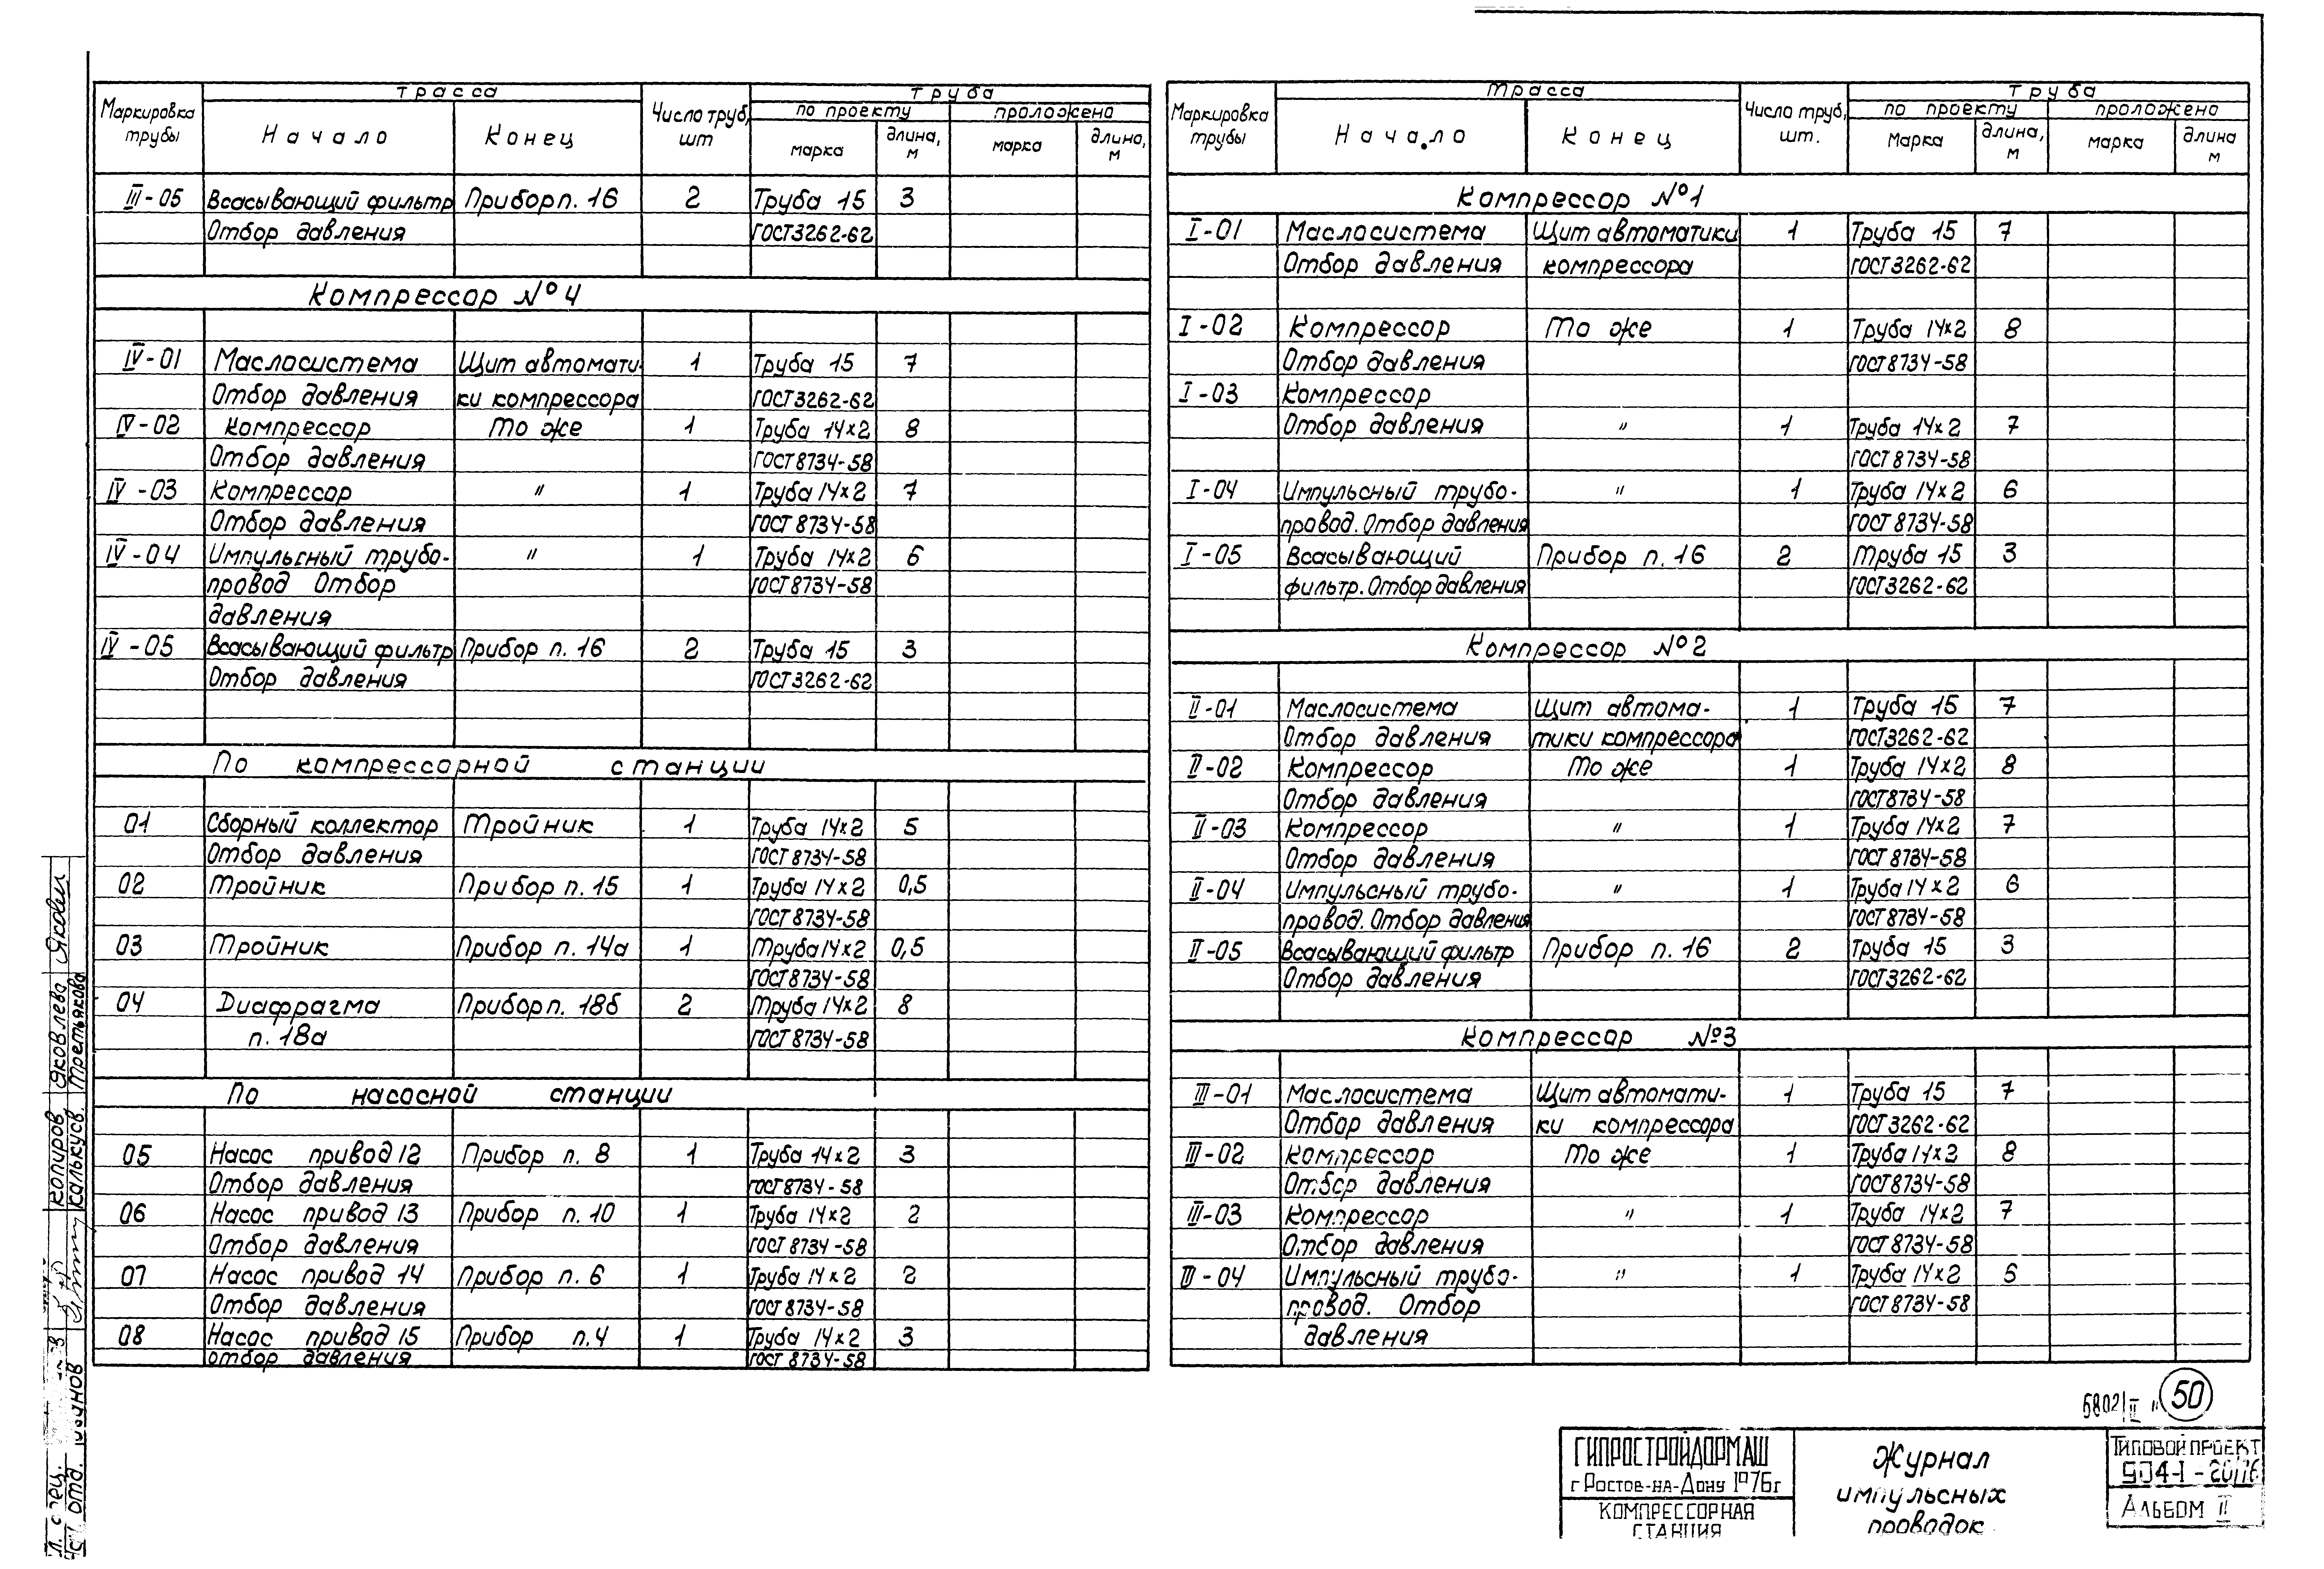 Маркировка трубы | Трасса | Число труб, шт | Труба
Начало | Конец | по проекту | проложено
марка | длина, м | марка | длина, м
III-05 Всасывающий фильтр Прибор п. 16 2 Труба 15 3
Отбор давления ГОСТ 3262-62
Компрессор №4
IV-01 Маслосистема Щит автомати- 1 Труба 15 7
Отбор давления ки компрессора ГОСТ 3262-62
IV-02 Компрессор То же 1 Труба 14х2 8
Отбор давления ГОСТ 8734-58
IV-03 Компрессор " 1 Труба 14х2 7
Отбор давления ГОСТ 8734-58
IV-04 Импульсный трубо- " 1 Труба 14х2 6
провод Отбор ГОСТ 8734-58
давления
IV-05 Всасывающий фильтр Прибор п. 16 2 Труба 15 3
Отбор давления ГОСТ 3262-62
По компрессорной станции
01 Сборный коллектор Тройник 1 Труба 14х2 5
Отбор давления ГОСТ 8734-58
02 Тройник Прибор п. 15 1 Труба 14х2 0,5
ГОСТ 8734-58
03 Тройник Прибор п. 14а 1 Труба 14х2 0,5
ГОСТ 8734-58
04 Диафрагма Прибор п. 18б 2 Труба 14х2 8
п. 18а ГОСТ 8734-58
По насосной станции
05 Насос привод 12 Прибор п. 8 1 Труба 14х2 3
Отбор давления ГОСТ 8734-58
06 Насос привод 13 Прибор п. 10 1 Труба 14х2 2
Отбор давления ГОСТ 8734-58
07 Насос привод 14 Прибор п. 6 1 Труба 14х2 2
Отбор давления ГОСТ 8734-58
08 Насос привод 15 Прибор п. 4 1 Труба 14х2 3
отбор давления ГОСТ 8734-58
Маркировка трубы | Трасса | Число труб, шт. | Труба
Начало | Конец | по проекту | проложено
марка | длина, м | марка | длина м
Компрессор №1
I-01 Маслосистема Щит автоматики 1 Труба 15 7
Отбор давления компрессора ГОСТ 3262-62
I-02 Компрессор То же 1 Труба 14х2 8
Отбор давления ГОСТ 8734-58
I-03 Компрессор
Отбор давления " 1 Труба 14х2 7
ГОСТ 8734-58
I-04 Импульсный трубо- " 1 Труба 14х2 6
провод. Отбор давления ГОСТ 8734-58
I-05 Всасывающий Прибор п. 16 2 Труба 15 3
фильтр. Отбор давления ГОСТ 3262-62
Компрессор №2
II-01 Маслосистема Щит автома- 1 Труба 15 7
Отбор давления тики компрессора ГОСТ 3262-62
II-02 Компрессор То же 1 Труба 14х2 8
Отбор давления ГОСТ 8734-58
II-03 Компрессор " 1 Труба 14х2 7
Отбор давления ГОСТ 8734-58
II-04 Импульсный трубо- " 1 Труба 14х2 6
провод. Отбор давления ГОСТ 8734-58
II-05 Всасывающий фильтр Прибор п. 16 2 Труба 15 3
Отбор давления ГОСТ 3262-62
Компрессор №3
III-01 Маслосистема Щит автомати- 1 Труба 15 7
Отбор давления ки компрессора ГОСТ 3262-62
III-02 Компрессор То же 1 Труба 14х2 8
Отбор давления ГОСТ 8734-58
III-03 Компрессор " 1 Труба 14х2 7
Отбор давления ГОСТ 8734-58
III-04 Импульсный трубо- " 1 Труба 14х2 6
провод. Отбор ГОСТ 8734-58
давления
6802/II 50
ГИПРОСТРОЙДОРМАШ
г Ростов-на-Дону 1976г
КОМПРЕССОРНАЯ
СТАНЦИЯ
Журнал
импульсных
проводок
Типовой проект
904-1-20/76
Альбом II
Копиров Яковлева
Калькуов. Третьякова
отд.